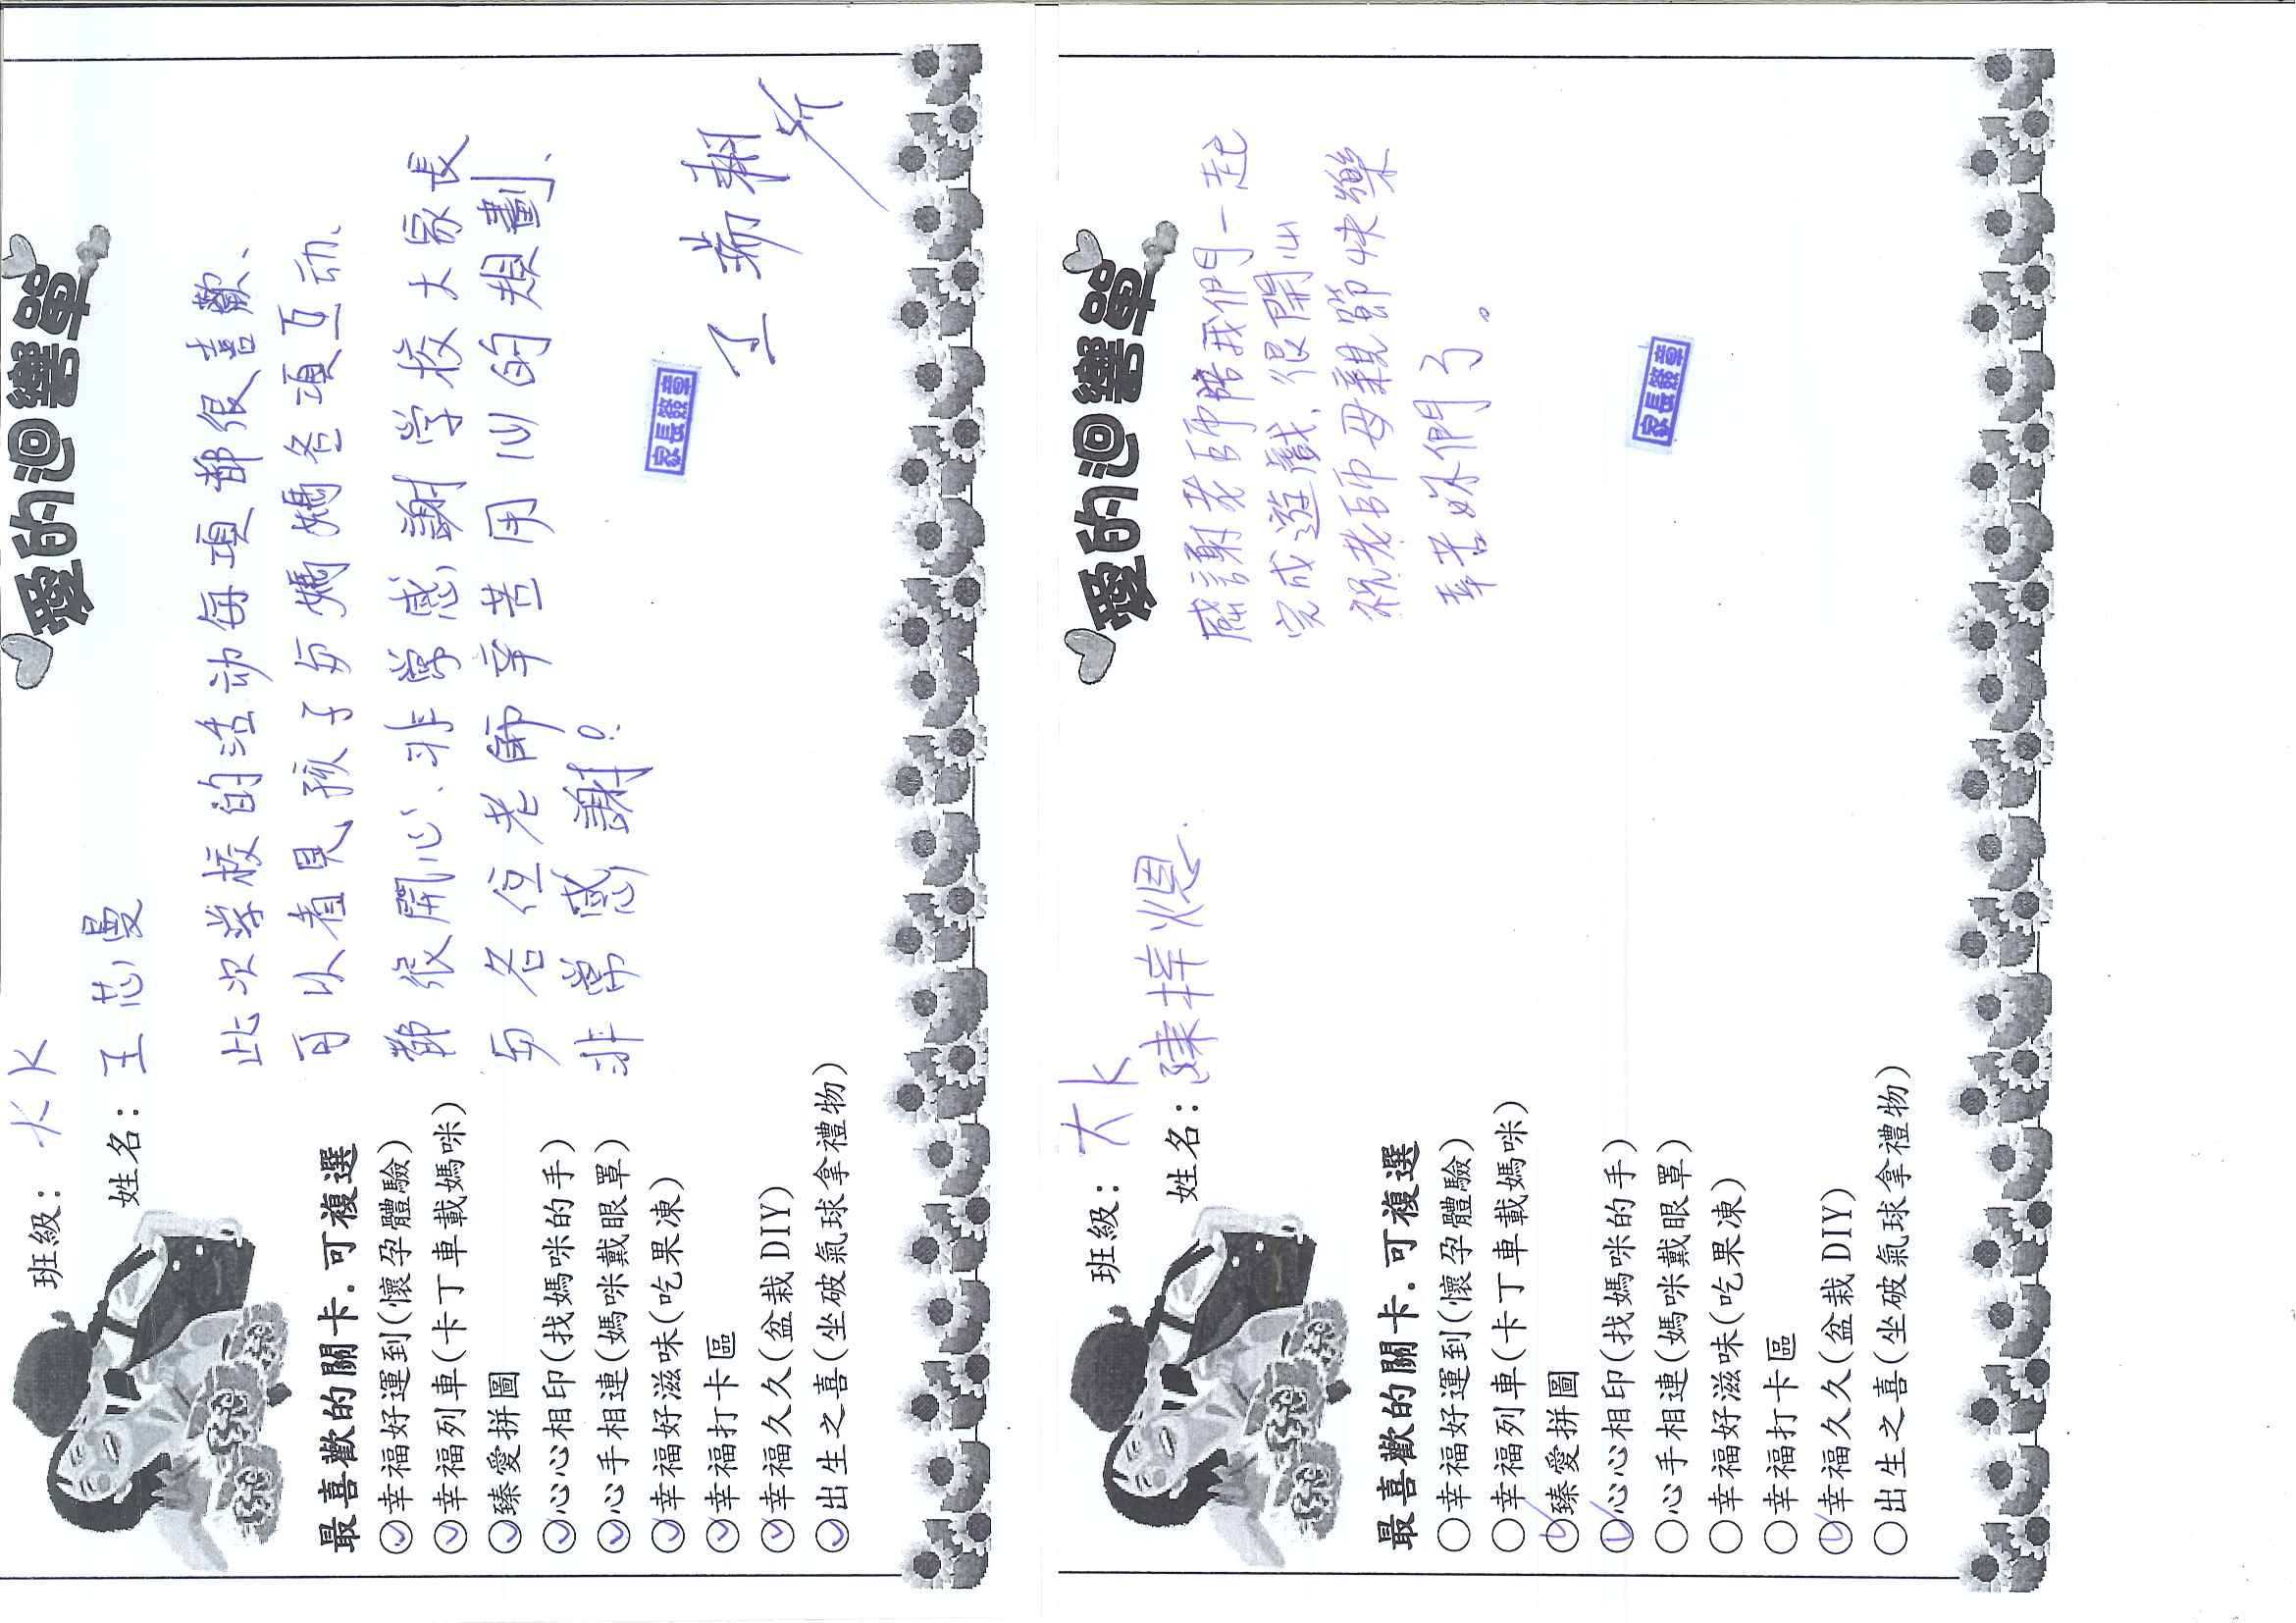 愛的迴響單
班級: 大K
姓名: 王芯曼
最喜歡的關卡.可複選
幸福好運到(懷孕體驗)
幸福列車(卡丁車載媽咪)
臻愛拼圖
心心相印(找媽咪的手)
心手相連(媽咪戴眼罩)
幸福好滋味(吃果凍)
幸福打卡區
幸福久久(盆栽DIY)
出生之喜(坐破氣球拿禮物)
此次学校的活动每項都很喜歡、
可以看見孩子与媽媽各項互动、
都很開心、非常感謝学校大家長
与各位老師辛苦用心的規劃、
非常感謝。
家長簽章
王
愛的迴響單
班級: 大K
姓名: 陳梓
最喜歡的關卡.可複選
幸福好運到(懷孕體驗)
幸福列車(卡丁車載媽咪)
臻愛拼圖
心心相印(找媽咪的手)
心手相連(媽咪戴眼罩)
幸福好滋味(吃果凍)
幸福打卡區
幸福久久(盆栽DIY)
出生之喜(坐破氣球拿禮物)
感謝老師陪我們一起
完成遊戲、很開心
祝老師母親節快樂
辛苦妳們了。
家長簽章